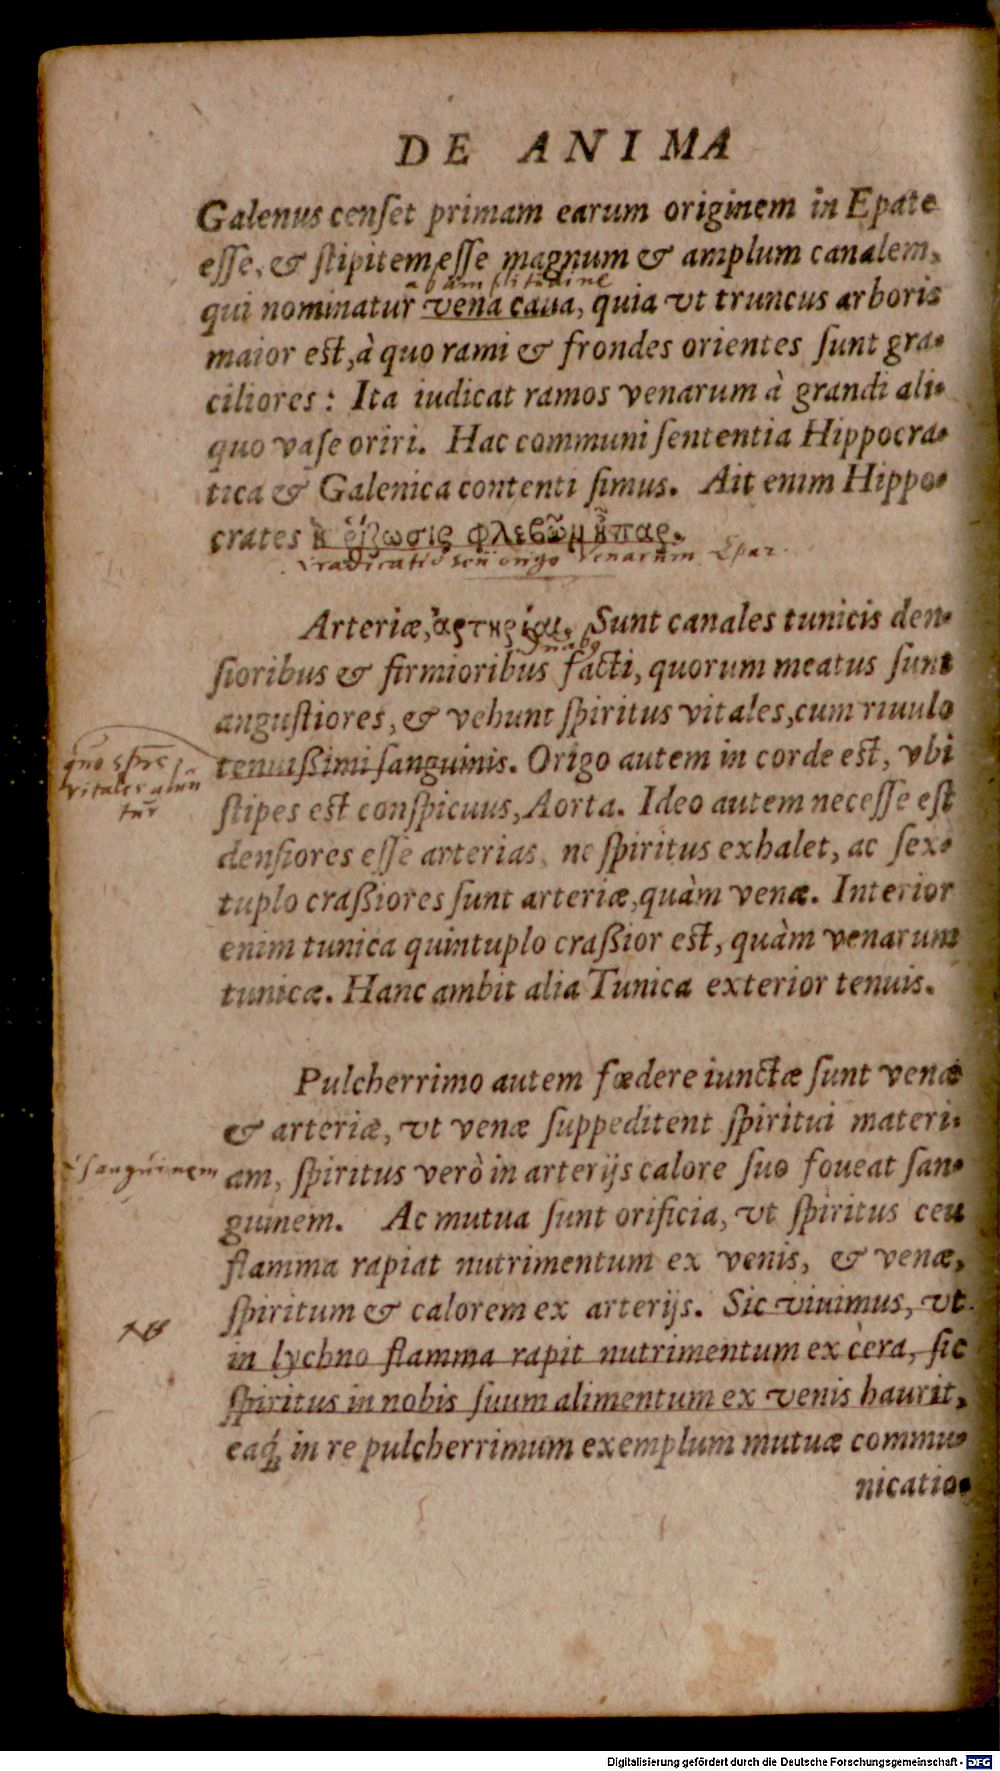 DE ANIMA
Galenus censet primam earum originem in Epate
esse, & stipitem esse magnum & amplum canalem,
ab amplitudine
qui nominatur vena caua, quia vt truncus arboris
maior est, à quo rami & frondes orientes sunt gra-
ciliores: Ita iudicat ramos venarum à grandi ali-
quo vase oriri. Hac communi sententia Hippocra-
tica & Galenica contenti simus. Ait enim Hippo-
crates ῥίζωσις φλεβῶμ ἧπαρ.
radicatio seu origo venarum Epar
Arteriæ, ἀρτηρίαι, Sunt canales tunicis den-
sioribus & firmioribus facti, quorum meatus sunt
angustiores, & vehunt spiritus vitales, cum riuulo
quo sprs
tenuißimi sanguinis. Origo autem in corde est, vbi
vitales alun
tur
stipes est conspicuus, Aorta. Ideo autem necesse est
densiores esse arterias, ne spiritus exhalet, ac sex-
tuplo craßiores sunt arteriæ, quàm venæ. Interior
enim tunica quintuplo craßior est, quàm venarum
tunicæ. Hanc ambit alia Tunica exterior tenuis.
Pulcherrimo autem fœdere iunctæ sunt venæ
& arteriæ, vt venæ suppeditent spiritui materi-
sanguinem
am, spiritus verò in arterijs calore suo foueat san-
guinem. Ac mutua sunt orificia, vt spiritus ceu
flamma rapiat nutrimentum ex venis, & venæ,
spiritum & calorem ex arterijs. Sic viuimus, vt
NB
in lychno flamma rapit nutrimentum ex cera, sic
spiritus in nobis suum alimentum ex venis haurit,
eaq́; in re pulcherrimum exemplum mutuæ commu-
nicatio-
Digitalisierung gefördert durch die Deutsche Forschungsgemeinschaft - DFG